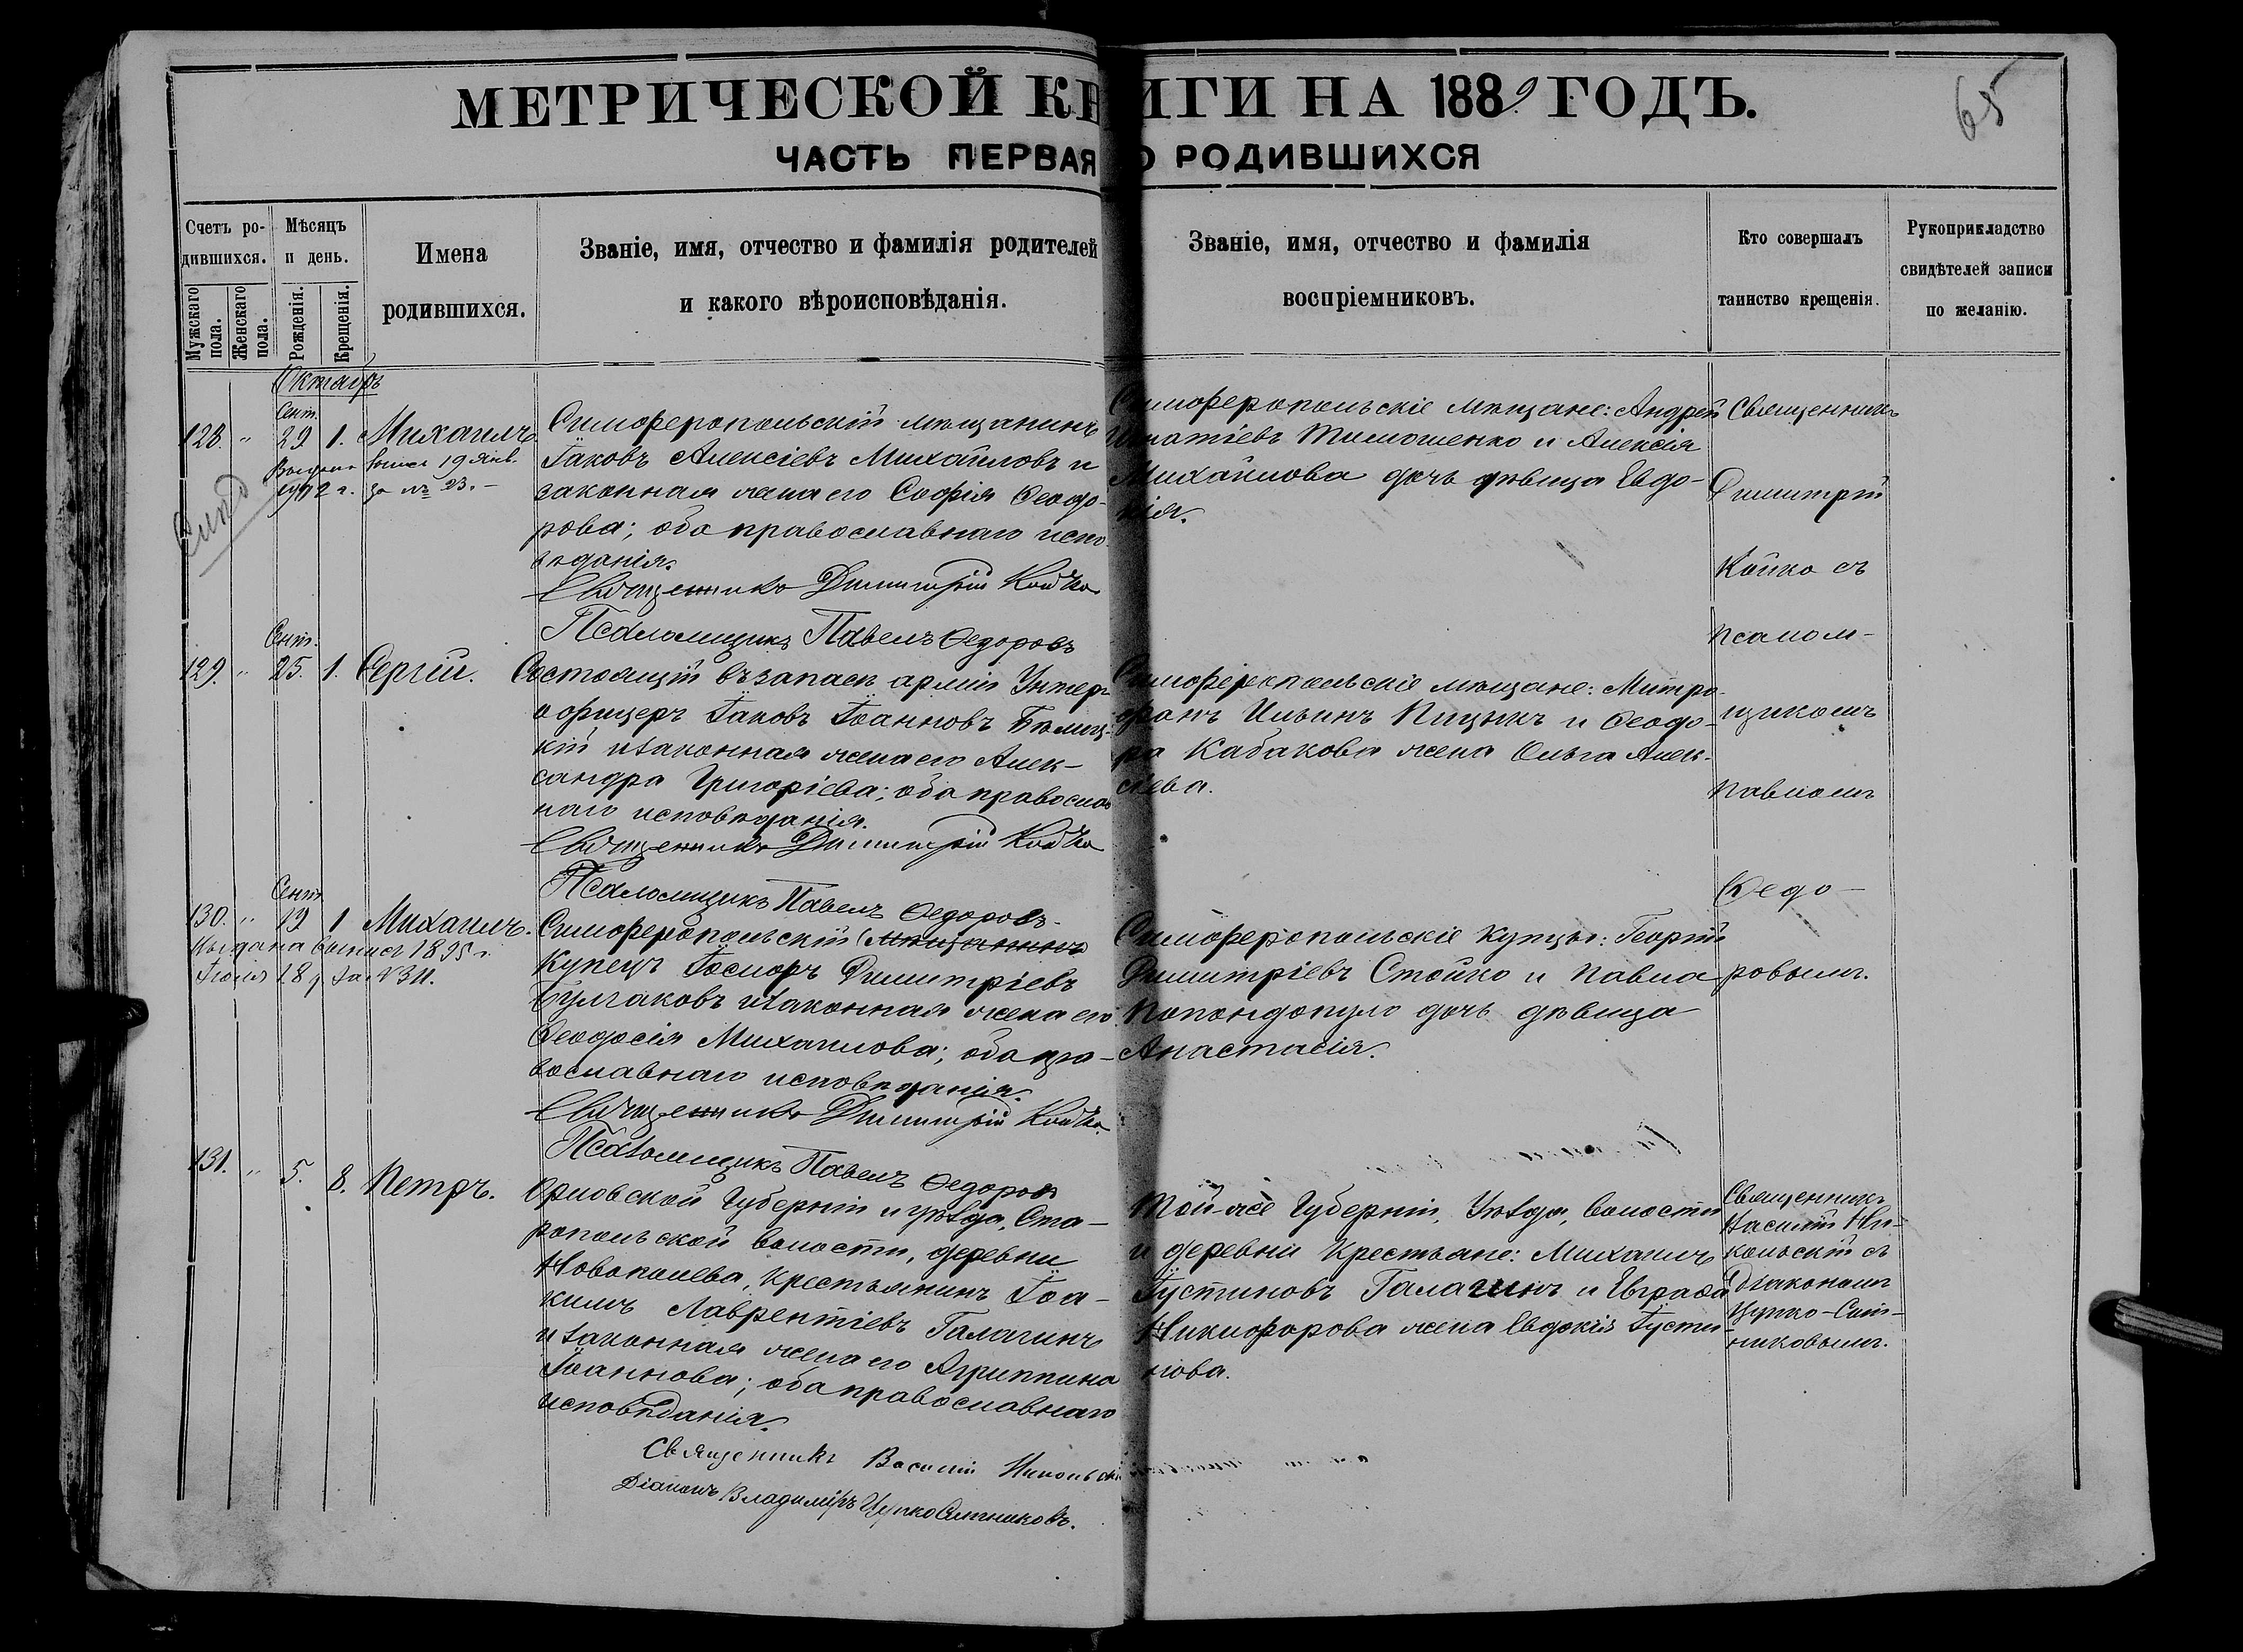 МЕТРИЧЕСКОЙ КНИГИ НА 1889 ГОДЪ.
65
ЧАСТЬ ПЕРВАЯ О РОДИВШИХСЯ
Счетъ ро-
дившихся.
Мужскаго пола.
Женскаго пола.
Мѣсяцъ
и день.
Рожденія.
Крещенія.
Имена
родившихся.
Званіе, имя, отчество и фамилія родителей
и какого вѣроисповѣданія.
Званіе, имя, отчество и фамилія
воспріемниковъ.
Кто совершалъ
таинство крещенія.
Рукоприкладство
свидѣтелей записи
по желанію.
Октябрь
Сент.
128. " 29 1. Михаилъ
выпись 19 Янв.
1912 г. за № 23. –
Симферопольскій мѣщанинъ
Іаковъ Алексіевъ Михайловъ и
законная жена его Софія Ѳеодо-
рова; оба православнаго испо-
вѣданія.
Священникъ Димитрій Койко
Псаломщикъ Павелъ Ѳедоровъ
Симферопольскіе мѣщане: Андрей
Игнатіевъ Тимошенко и Алексія
Михайлова дочь дѣвица Евдо-
кія.
Священникъ
Димитрій
Койко съ
псалом-
щикомъ
Павломъ
Ѳедо-
ровымъ.
Сент.
129. " 25. 1. Сергій.
Состоящій въ запасѣ арміи Унтеръ
офицеръ Іаковъ Іоанновъ
кій и законная жена его Алек-
сандра Григоріева; оба православ
наго исповѣданія.
Священникъ Димитрій Койко
Псаломщикъ Павелъ Ѳедоровъ
Симферопольскіе мѣщане: Митро-
фанъ Ильинъ и Ѳеодо-
ра Кабакова жена Ольга Алек-
сіева.
Сент
130. " 19 1 Михаилъ.
Выдана выпись 1895 г.
за № 311.
Симферопольскій (мѣщанинъ
Купецъ Димитріевъ
Булгаковъ и законная жена его
Ѳеодосія Михаилова; оба пра-
вославнаго исповѣданія.
Священникъ Димитрій Койко
Псаломщикъ Павелъ Ѳедоровъ
Симферопольскіе купцы: Георгій
Димитріевъ Стойко и Павла
Попандопуло дочь дѣвица
Анастасія.
131. " 5. 8. Петръ.
Орловской Губерніи и уѣзда, Ста-
ропольской волости, деревни
крестьянинъ Іоа-
кимъ Лаврентіевъ Галагинъ
и законная жена его Агриппина
Іоаннова; оба православнаго
исповѣданія.
Священникъ Василій Никольскій
Діаконъ Владиміръ Цупко Ситниковъ.
Той-же Губерніи, Уѣзда, волости
и деревни крестьяне: Михаилъ
Іустиновъ Галагинъ и Евграфа
Никифорова жена Евдокія Іусти-
нова.
Священникъ
Василій Ни-
кольскій съ
Діакономъ
Цупко-Сит-
никовымъ.